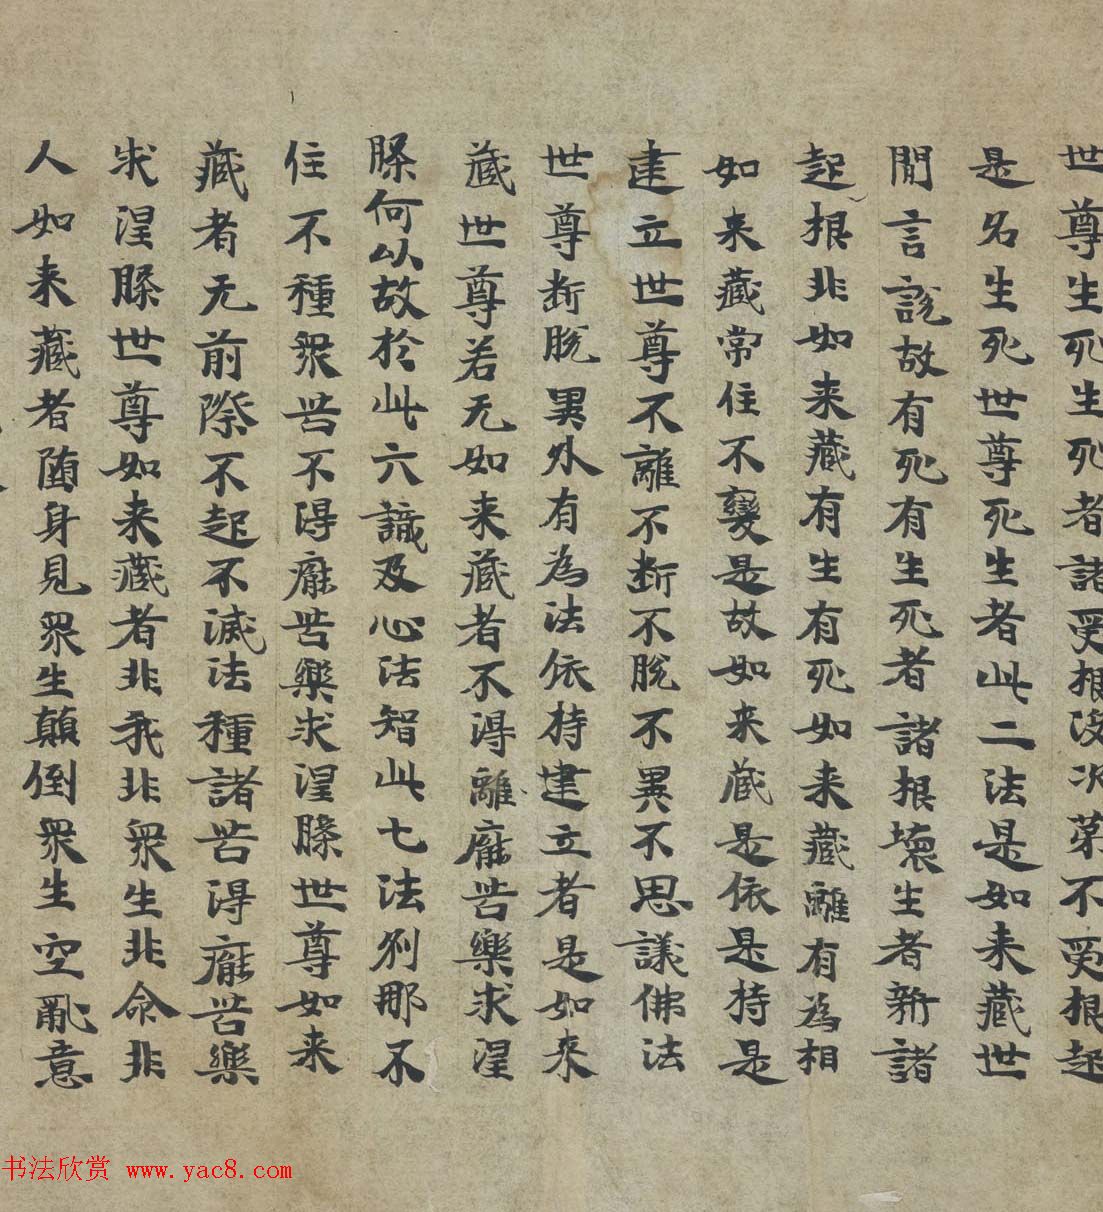 世尊生死生死者諸受根没次第不受根起
是名生死世尊死生者此二法是如来藏世
間言說故有死有生死者諸根壞生者新諸
起根非如来藏有生有死如来藏離有為相
如来藏常住不變是故如来藏是依是持是
建立世尊不離不断不脱不異不思議佛法
世尊断脱異外有為法依持建立者是如来
藏世尊若无如来藏者不淂離厭苦樂求涅
槃何以故於此六識及心法智此七法刹那不
住不種衆苦不淂厭苦樂求涅槃世尊如来
藏者无前際不起不滅法種諸苦淂厭苦樂
求涅槃世尊如来藏者非我非衆生非命非
人如来藏者随身見衆生顛倒衆生空亂意
书法欣赏 www.yac8.com